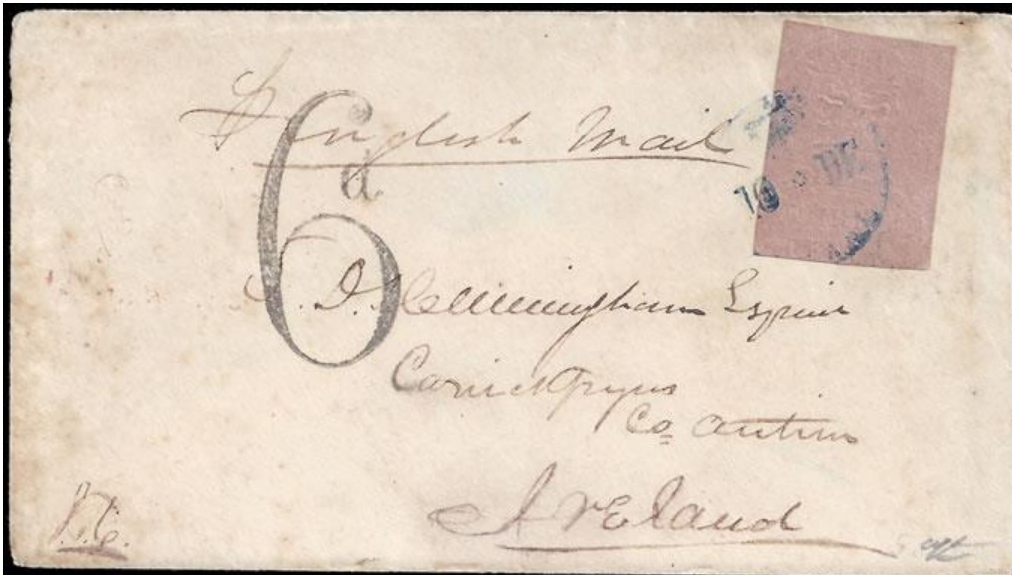 English Mail
6d.
10 DE
D. Cunningham Esquire
Carrickfergus
Co Antrim
Ireland